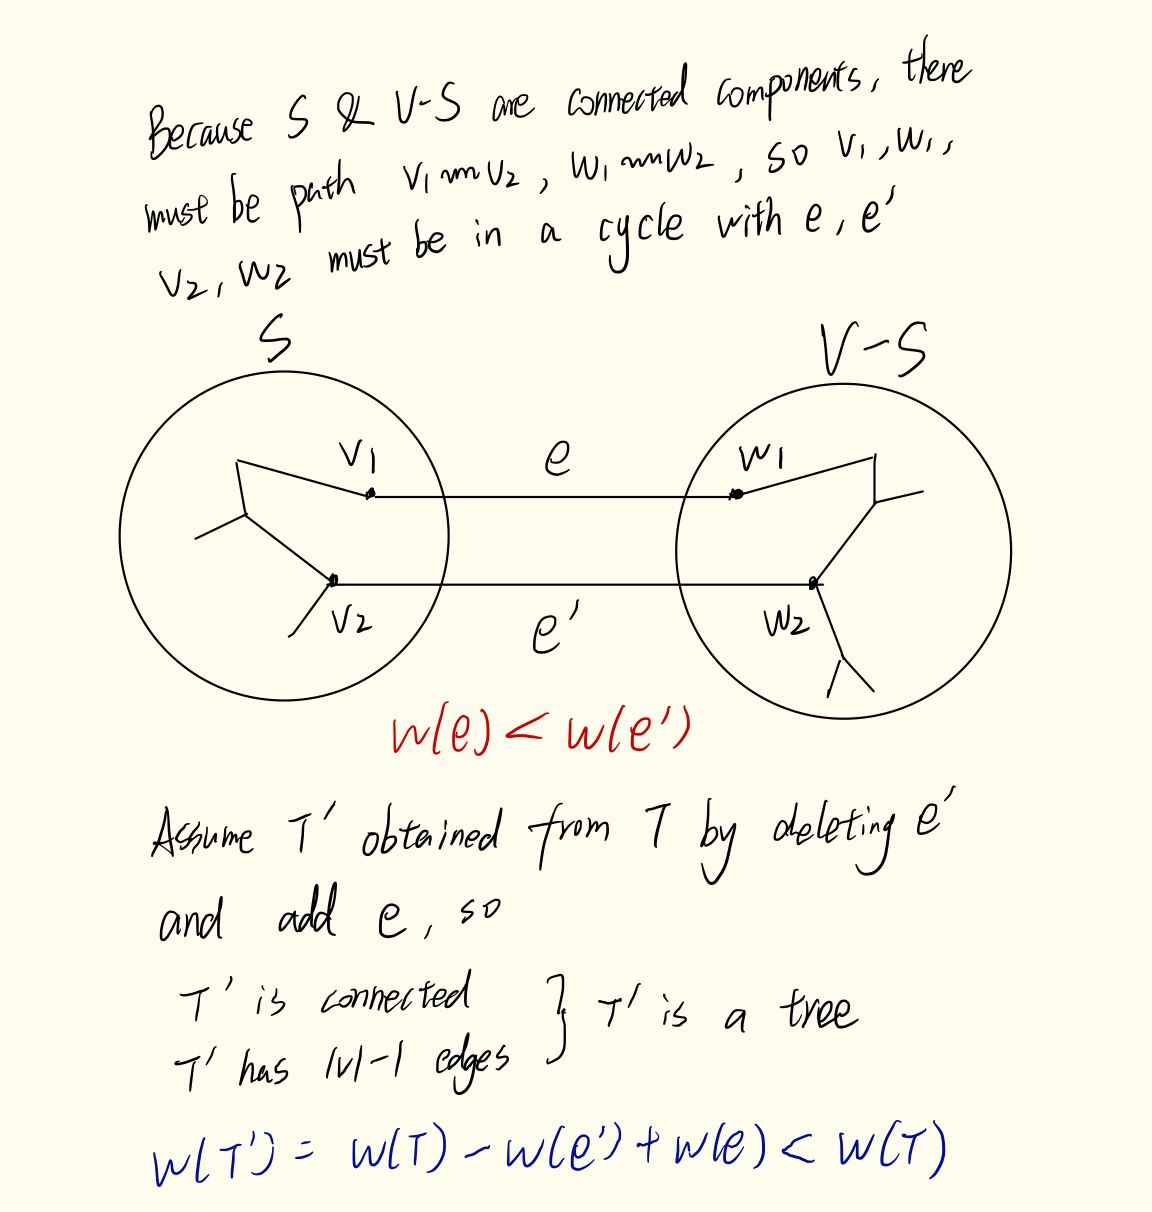 Because S & V-S are connected components, there
must be path v1 ~~~ v2, w1 ~~~ w2, so v1, w1,
v2, w2 must be in a cycle with e, e'
S
V-S
v1
e
w1
v2
e'
w2
w(e) < w(e')
Assume T' obtained from T by deleting e'
and add e, so
T' is connected
T' has |v|-1 edges } T' is a tree
w(T') = w(T) - w(e') + w(e) < w(T)